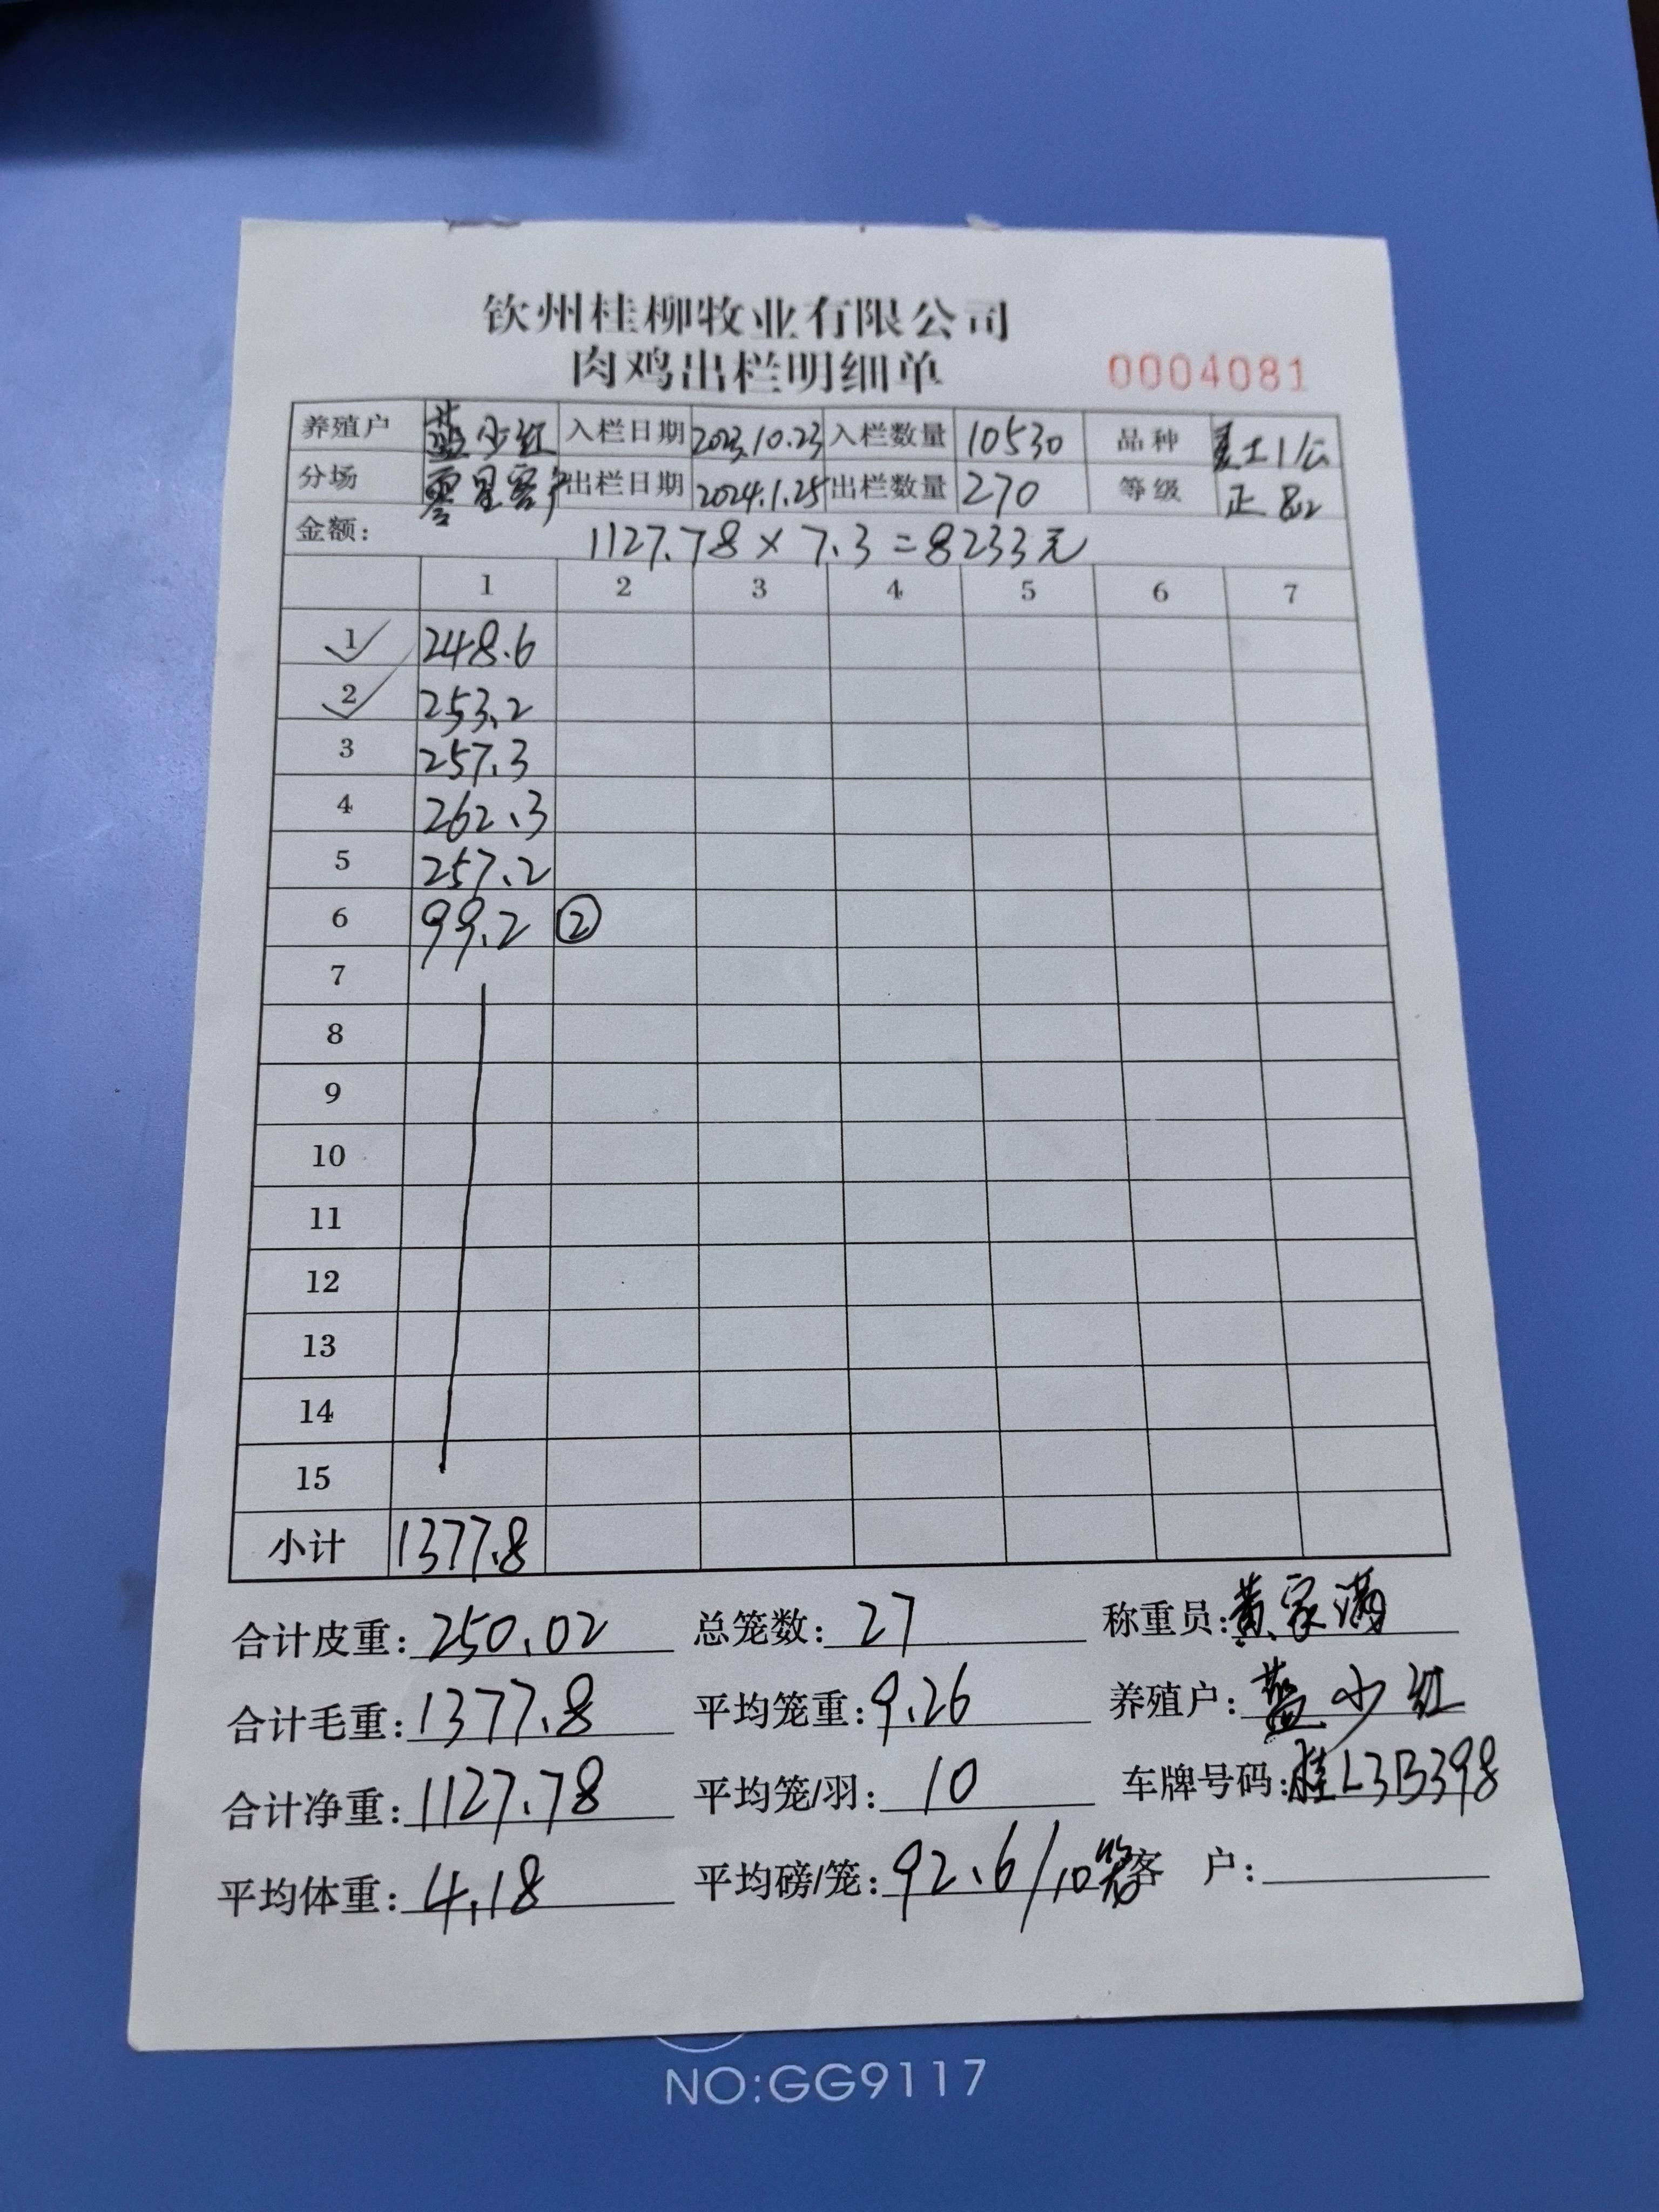 钦州桂柳牧业有限公司
肉鸡出栏明细单 0004081
养殖户 蓝少红 入栏日期 2023.10.23 入栏数量 10530 品种 土1公
分场 零星客户 出栏日期 2024.1.25 出栏数量 270 等级 正
金额: 1127.78 × 7.3 = 8233元
1 2 3 4 5 6 7
1 248.6
2 253.2
3 257.3
4 262.3
5 257.2
6 99.2 ②
7
8
9
10
11
12
13
14
15
小计 1377.8
合计皮重: 250.02 总笼数: 27 称重员: 黄家满
合计毛重: 1377.8 平均笼重: 9.26 养殖户: 蓝少红
合计净重: 1127.78 平均笼/羽: 10 车牌号码: 桂L3B398
平均体重: 4.18 平均磅/笼: 92.6/10笼 客 户:
NO:GG9117